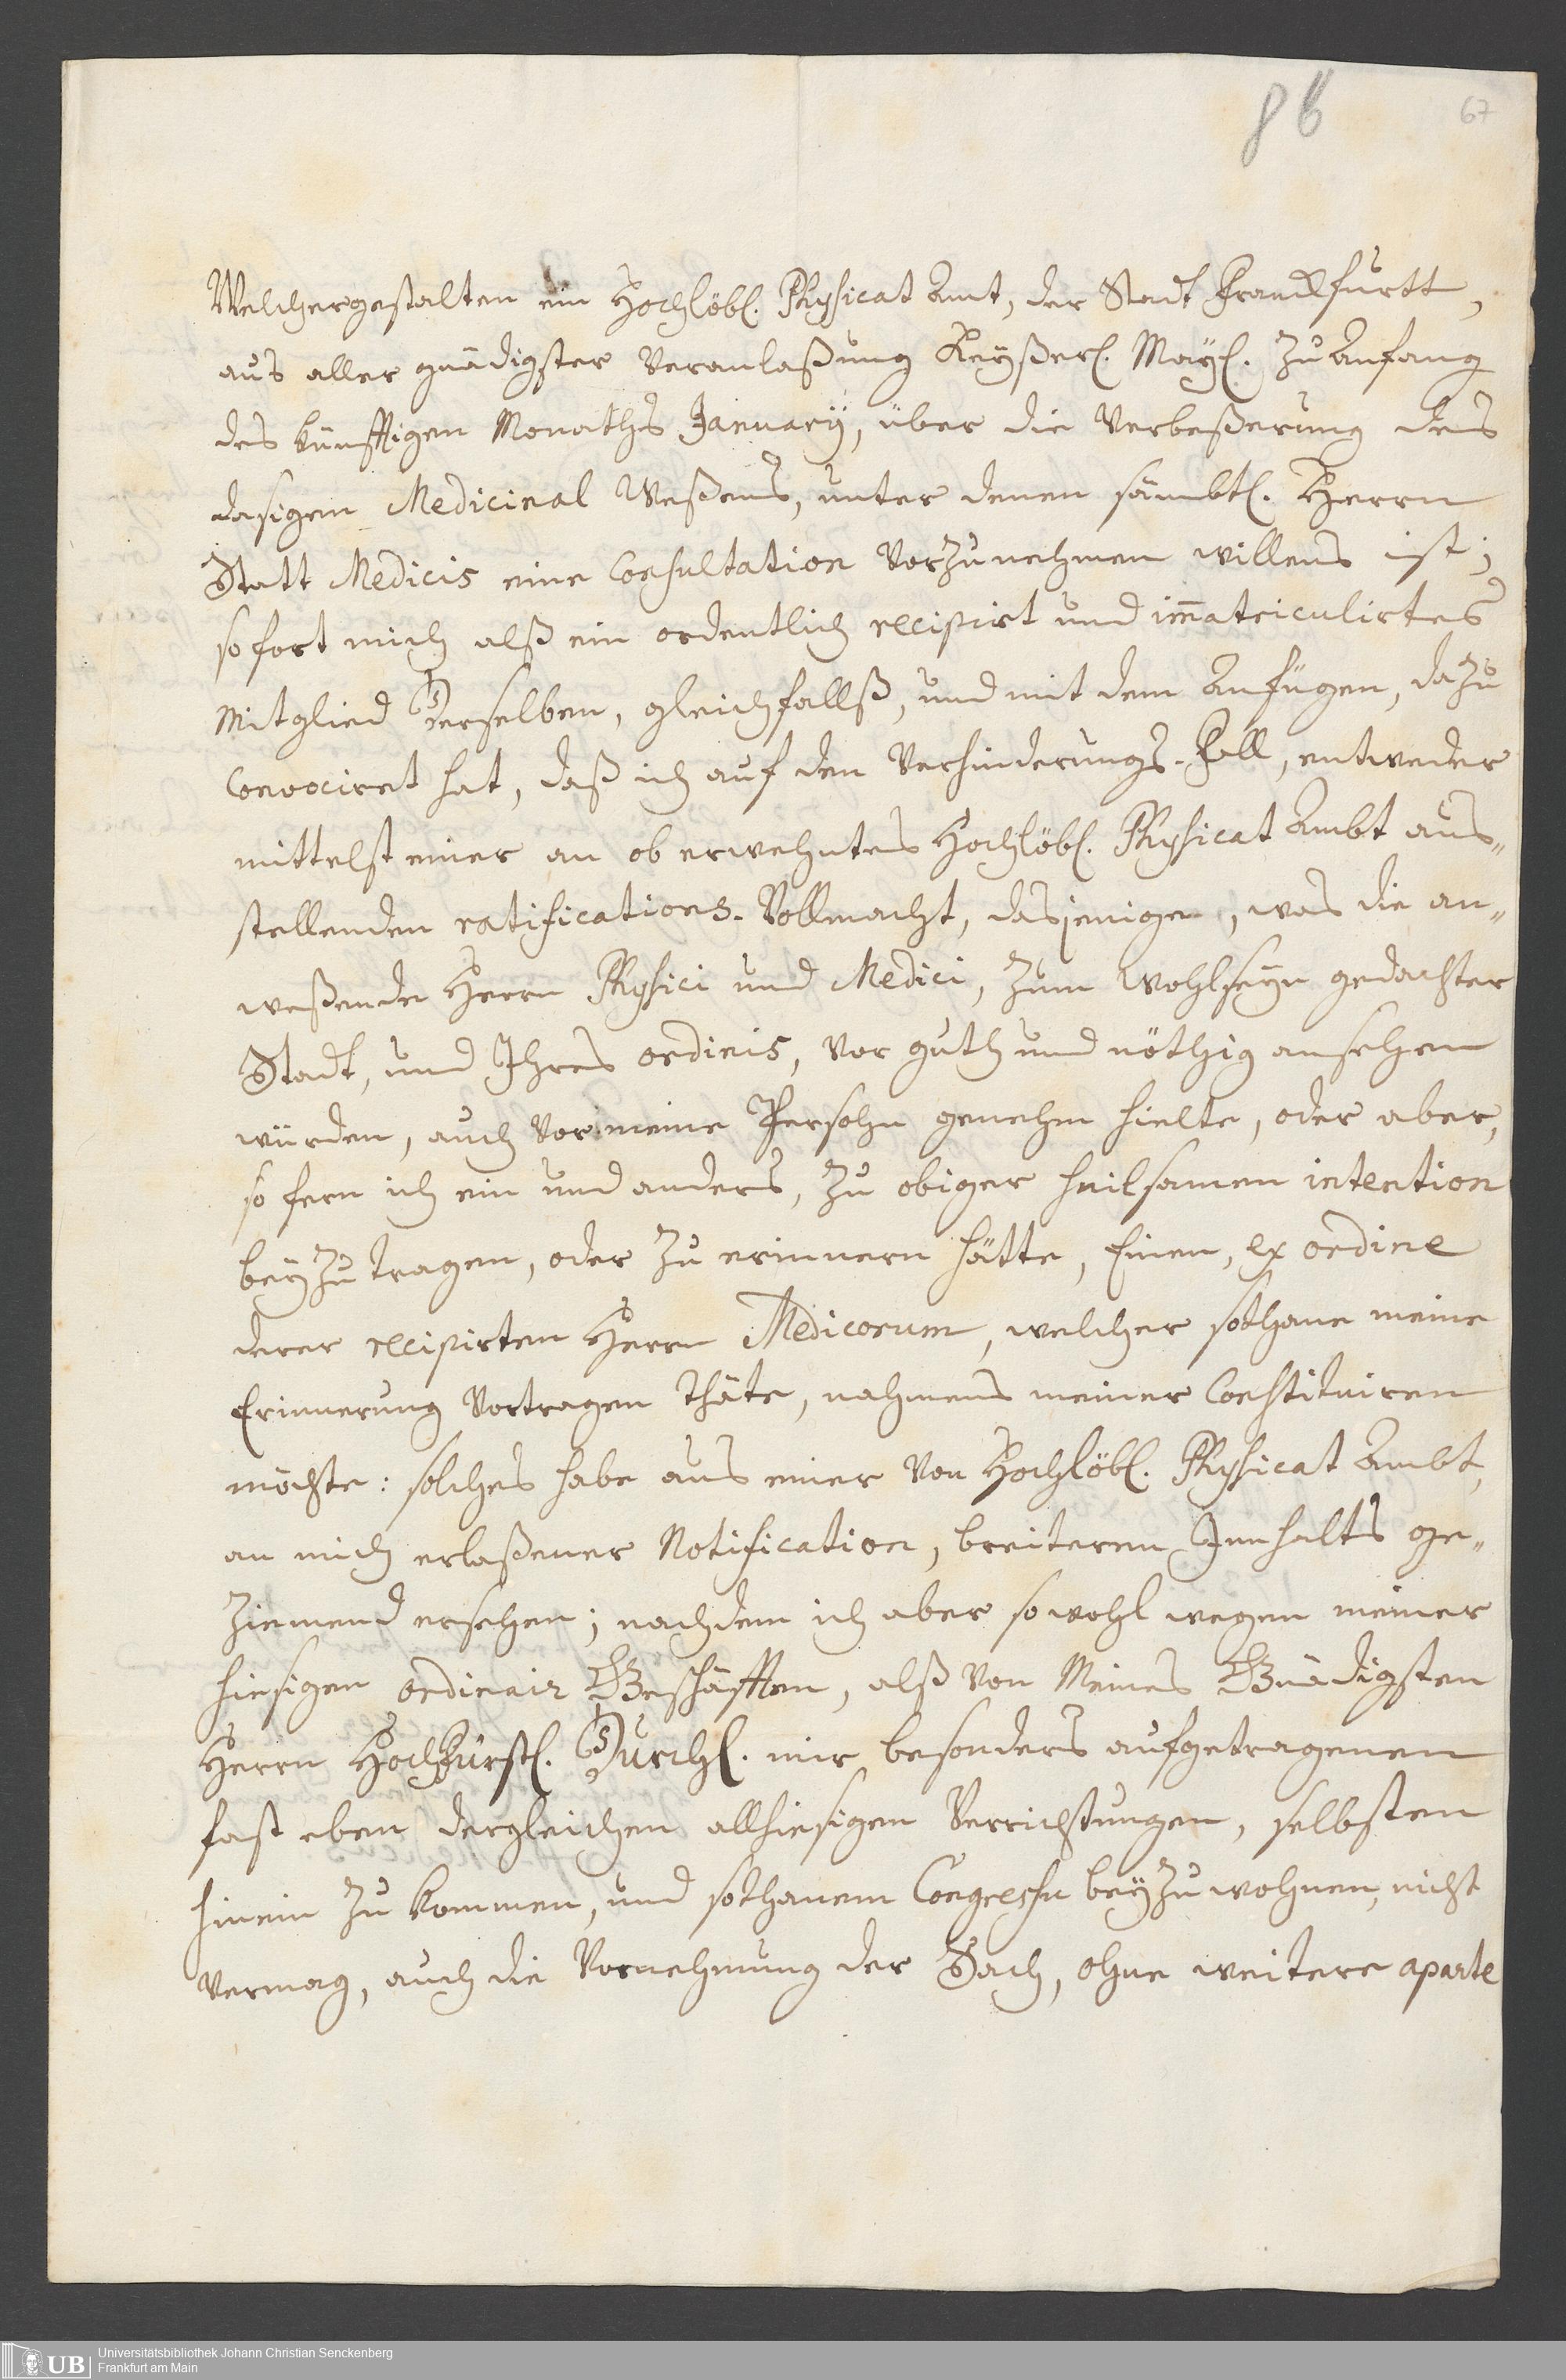 86
67
Welchergestalten ein Hochlöbl. Physicat Amt, der Stadt Franckfurtt,
aus aller gnädigster Veranlaßung Keyßerl. Mayl. zu Anfang
des künfftigen Monaths January, über die Verbeßerung des
dasigen Medicinal Weßens, unter denen sämbtl. Herrn
Statt Medicis eine Consultation vorzunehmen willens ist;
sofort mich alß ein ordentlich recipirt und im̄atriculirtes
Mitglied Derselben, gleichfallß, und mit dem Anfügen, dazu
convociret hat, daß ich auf den Verhinderungs-Fall, entweder
mittelst einer an ob erwehntes Hochlöbl. Physicat Ambt aus„
stellenden ratifications-Vollmacht, dasjenige, was die an„
weßende Herrn Physici und Medici, zum Wohlseyn gedachter
Stadt, und Ihres ordinis, vor guth und nöthig ansehen
würden, auch vor meine Persohn genehm hielte, oder aber,
so fern ich ein und anders, zu obiger heilsamen intention
beyzutragen, oder zu erinnern hätte, Einen, ex ordine
derer recipirten Herrn Medicorum, welcher sothane meine
Erinnerung vortragen thäte, nahmens meiner constituiren
möchte: solches habe aus einer von Hochlöbl. Physicat Ambt,
an mich erlaßener Notification, breiteren Innhalts ge„
ziemend ersehen; nachdem ich aber so wohl wegen meiner
hiesigen ordinair Geschäfften, alß von Meines Gnädigsten
Herrn Hochfürstl. Durchl. mir besonders aufgetragenen
fast eben dergleichen allhiesigen Verrichtungen, selbsten
hinein zu kommen, und sothanem Congressu beyzuwohnen, nicht
vermag, auch die Vornehmung der Sach, ohne weitere aparte
UB
Universitätsbibliothek Johann Christian Senckenberg
Frankfurt am Main